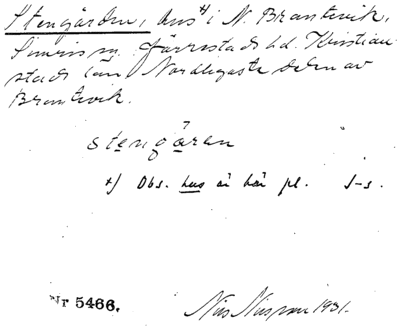 Stengården, hus *) i N. Brantevik,
Simris sn. Järrestads hd. Kristian-
stads län. Nordligaste delen av
Brantevik.
stengåren
*) Obs. hus är här pl. J-s.
Nr 5466. Nils Nilsson 1931.